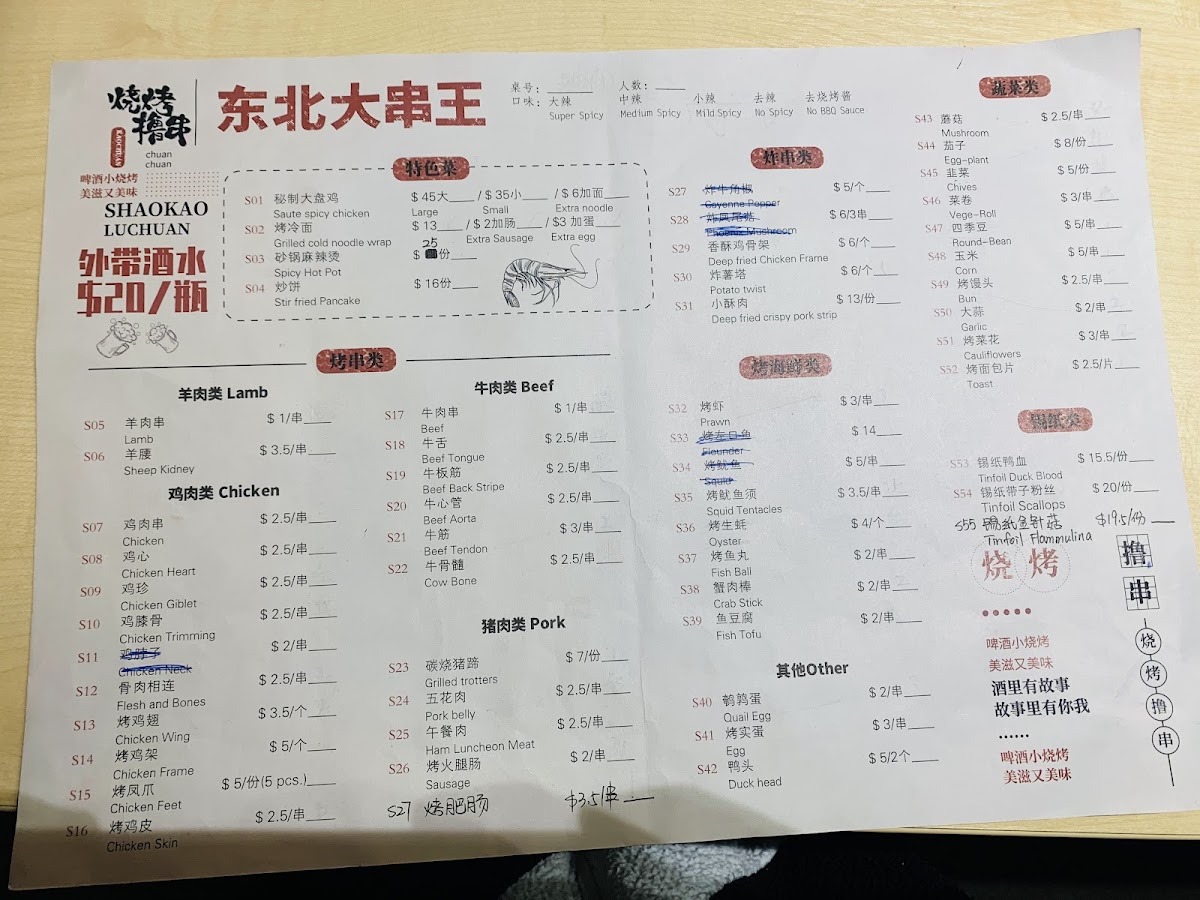 烧烤
撸串
KAOCHUAN
chuan
chuan
啤酒小烧烤
美滋又美味
SHAOKAO
LUCHUAN
外带酒水
$20/瓶
东北大串王
桌号：______ 人数：____
口味：大辣 中辣 小辣 去辣 去烧烤酱
Super Spicy Medium Spicy Mild Spicy No Spicy No BBQ Sauce
特色菜
S01 秘制大盘鸡 $ 45大____ / $ 35小____ / $ 6加面____
Saute spicy chicken Large Small Extra noodle
S02 烤冷面 $ 13____ / $ 2加肠____ / $3 加蛋____
Grilled cold noodle wrap Extra Sausage Extra egg
S03 砂锅麻辣烫 $ 25份____
Spicy Hot Pot
S04 炒饼 $ 16份____
Stir fried Pancake
烤串类
羊肉类 Lamb
S05 羊肉串 $ 1/串____
Lamb
S06 羊腰 $ 3.5/串____
Sheep Kidney
鸡肉类 Chicken
S07 鸡肉串 $ 2.5/串____
Chicken
S08 鸡心 $ 2.5/串____
Chicken Heart
S09 鸡珍 $ 2.5/串____
Chicken Giblet
S10 鸡膝骨 $ 2.5/串____
Chicken Trimming
S11 鸡脖子 $ 2/串____
Chicken Neck
S12 骨肉相连 $ 2.5/串____
Flesh and Bones
S13 烤鸡翅 $ 3.5/个____
Chicken Wing
S14 烤鸡架 $ 5/个____
Chicken Frame
S15 烤凤爪 $ 5/份(5 pcs.)____
Chicken Feet
S16 烤鸡皮 $ 2.5/串____
Chicken Skin
牛肉类 Beef
S17 牛肉串 $ 1/串____
Beef
S18 牛舌 $ 2.5/串____
Beef Tongue
S19 牛板筋 $ 2.5/串____
Beef Back Stripe
S20 牛心管 $ 2.5/串____
Beef Aorta
S21 牛筋 $ 3/串____
Beef Tendon
S22 牛骨髓 $ 2.5/串____
Cow Bone
猪肉类 Pork
S23 碳烧猪蹄 $ 7/份____
Grilled trotters
S24 五花肉 $ 2.5/串____
Pork belly
S25 午餐肉 $ 2.5/串____
Ham Luncheon Meat
S26 烤火腿肠 $ 2/串____
Sausage
S27 烤肥肠 $3.5/串____
炸串类
S27 炸牛角椒 $ 5/个____
Cayenne Pepper
S28 $ 6/3串____
Mushroom
S29 香酥鸡骨架 $ 6/个____
Deep fried Chicken Frame
S30 炸薯塔 $ 6/个____
Potato twist
S31 小酥肉 $ 13/份____
Deep fried crispy pork strip
烤海鲜类
S32 烤虾 $ 3/串____
Prawn
S33 烤左口鱼 $ 14____
Flounder
S34 烤鱿鱼 $ 5/串____
Squid
S35 烤鱿鱼须 $ 3.5/串____
Squid Tentacles
S36 烤生蚝 $ 4/个____
Oyster
S37 烤鱼丸 $ 2/串____
Fish Ball
S38 蟹肉棒 $ 2/串____
Crab Stick
S39 鱼豆腐 $ 2/串____
Fish Tofu
其他Other
S40 鹌鹑蛋 $ 2/串____
Quail Egg
S41 烤实蛋 $ 3/串____
Egg
S42 鸭头 $ 5/2个____
Duck head
蔬菜类
S43 蘑菇 $ 2.5/串____
Mushroom
S44 茄子 $ 8/份____
Egg-plant
S45 韭菜 $ 5/份____
Chives
S46 菜卷 $ 3/串____
Vege-Roll
S47 四季豆 $ 5/串____
Round-Bean
S48 玉米 $ 5/串____
Corn
S49 烤馒头 $ 2.5/串____
Bun
S50 大蒜 $ 2/串____
Garlic
S51 烤菜花 $ 3/串____
Cauliflowers
S52 烤面包片 $ 2.5/片____
Toast
锡纸类
S53 锡纸鸭血 $ 15.5/份____
Tinfoil Duck Blood
S54 锡纸带子粉丝 $ 20/份____
Tinfoil Scallops
S55 锡纸金针菇 $19.5/份____
Tinfoil Flammulina
烧烤
啤酒小烧烤
美滋又美味
酒里有故事
故事里有你我
啤酒小烧烤
美滋又美味
撸
串
烧
烤
撸
串